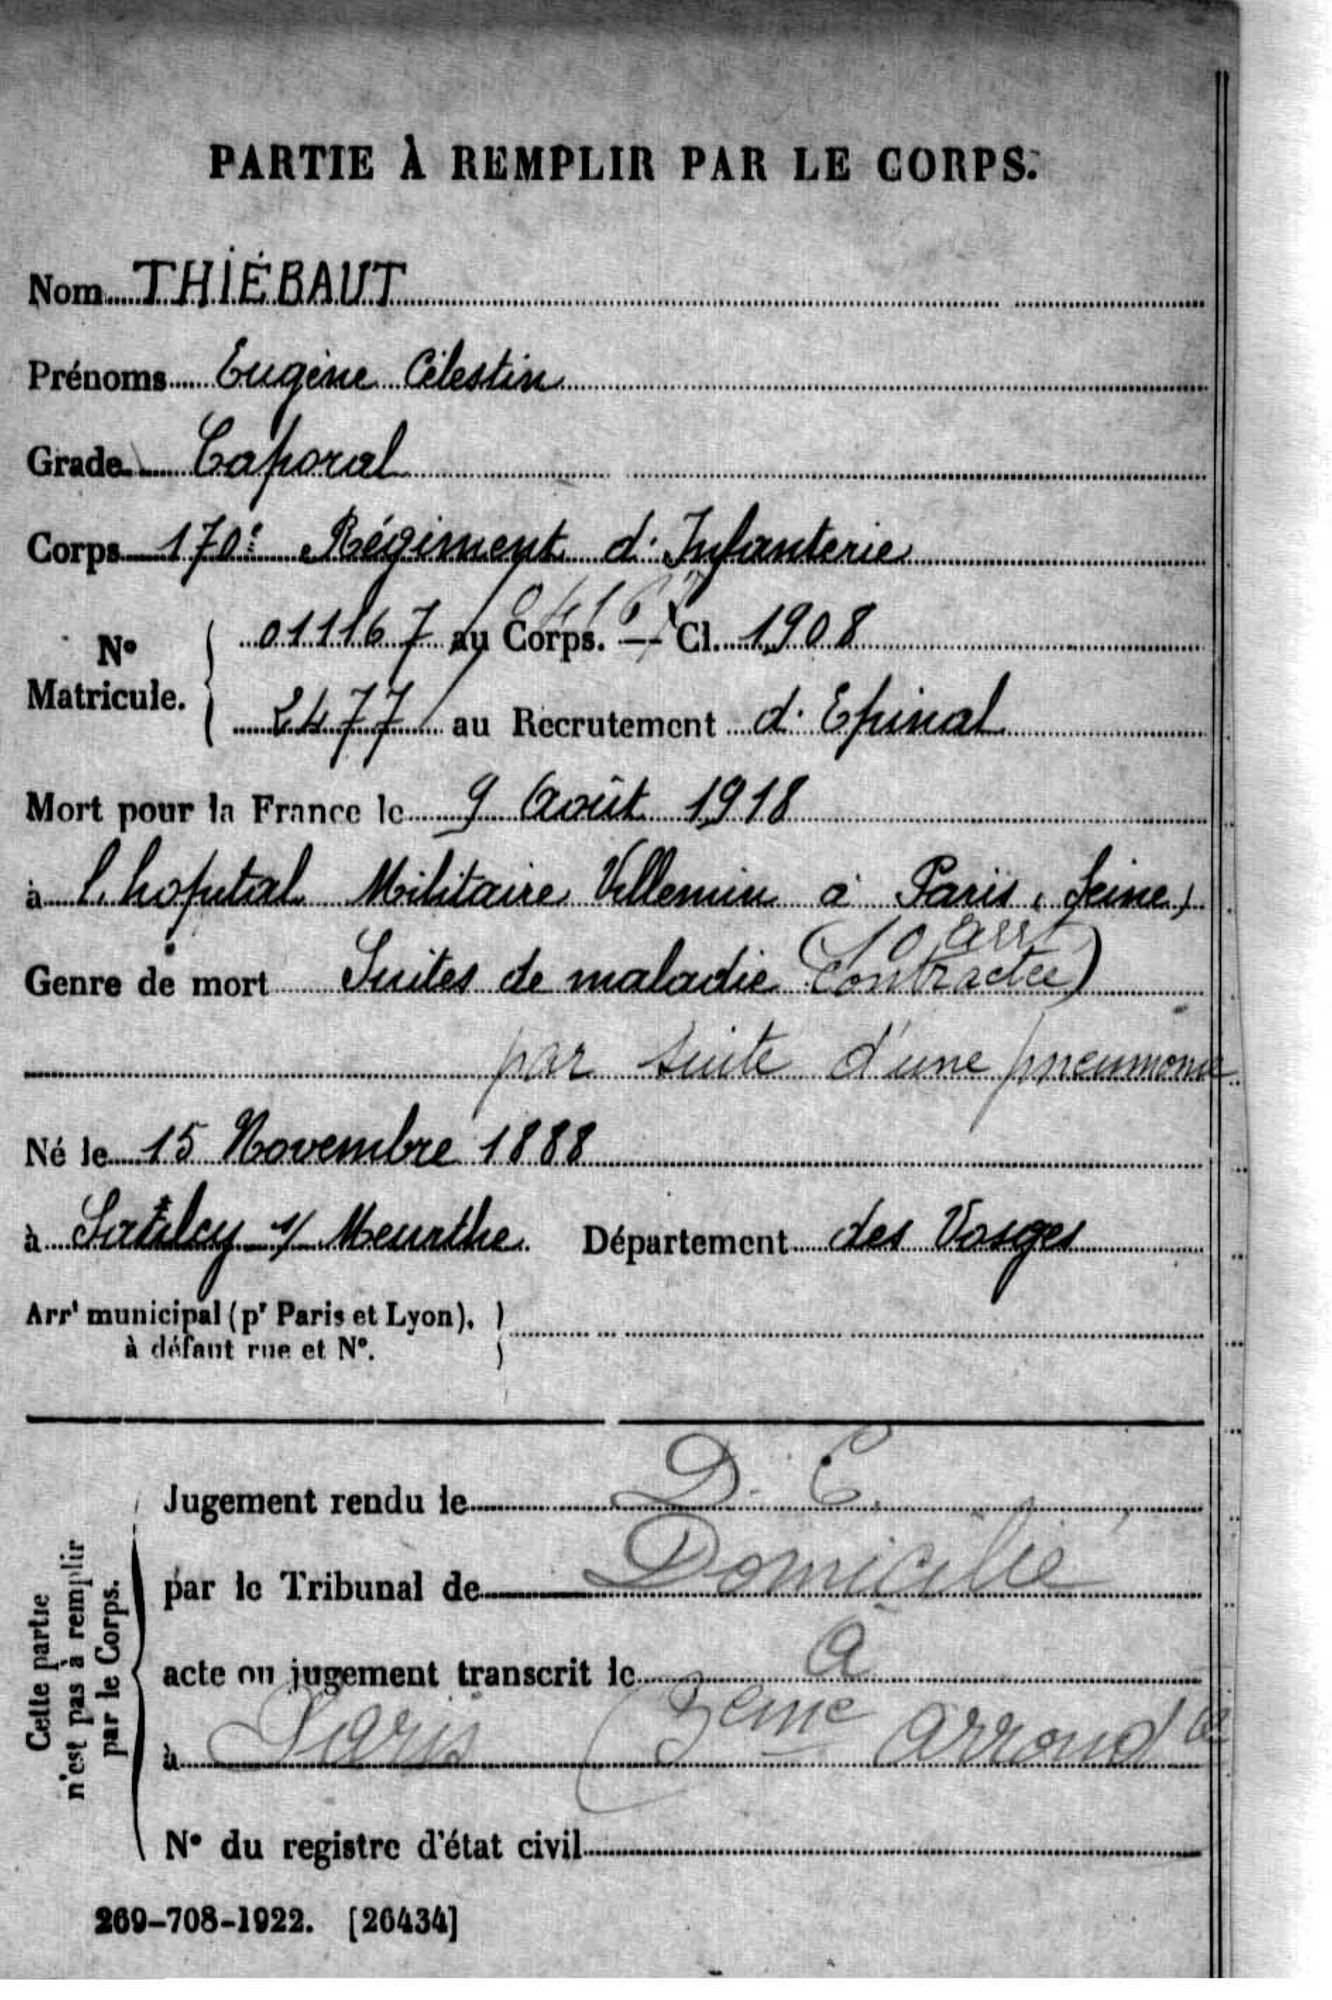 PARTIE À REMPLIR PAR LE CORPS.
Nom THIÉBAUT
Prénoms Eugène Célestin
Grade Caporal
Corps 170e Régiment d'Infanterie
N° Matricule. 011167 au Corps. — Cl. 1908
2477 au Recrutement d'Epinal
Mort pour la France le 9 Août 1918
à l'hopital Militaire Villemin à Paris (Seine)
(10 arrt
Genre de mort Suites de maladie Contractée)
par suite d'une pneumonie
Né le 15 Novembre 1888
à Saulcy s/ Meurthe Département des Vosges
Arrt municipal (pr Paris et Lyon),
à défaut rue et N°.
Cette partie n'est pas à remplir par le Corps.
Jugement rendu le D. C.
par le Tribunal de Domicilié
acte ou jugement transcrit le à
à Paris (3eme Arrond
N° du registre d'état civil
269-708-1922. [26434]